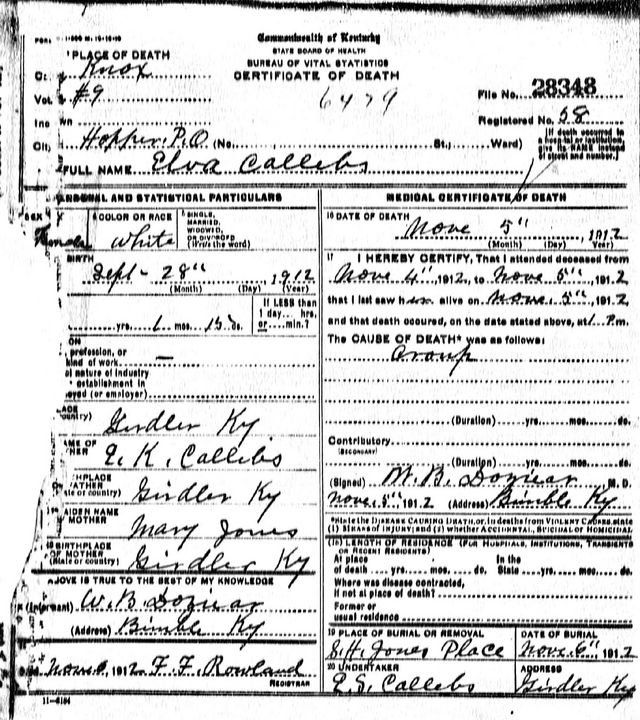 Commonwealth of Kentucky
STATE BOARD OF HEALTH
BUREAU OF VITAL STATISTICS
CERTIFICATE OF DEATH
6479
File No. 28348
Registered No. 58
[If death occurred in a hospital or institution, give its NAME instead of street and number.]
PLACE OF DEATH
Knox
Vot. #9
Inc wn
Cit Hopper P.O. (No. St.; Ward)
FULL NAME Elva Callebs
PERSONAL AND STATISTICAL PARTICULARS
SEX Female
COLOR OR RACE White
SINGLE, MARRIED, WIDOWED, OR DIVORCED (Write the word)
BIRTH
Sept- 28" 1912
(Month) (Day) (Year)
yrs. 1 mos. ds.
If LESS than 1 day... hrs. or... min.?
ON
profession, or kind of work —
nature of industry
establishment in
(or employer)
Girdler Ky
E. K. Callebs
Girdler Ky
MAIDEN NAME
MOTHER Mary Jones
BIRTHPLACE OF MOTHER (State or country) Girdler Ky
ABOVE IS TRUE TO THE BEST OF MY KNOWLEDGE
(Informant) W. B. Doziear
(Address) Bimble Ky
Nov. 6, 1912 F. F. Rowland
REGISTRAR
11-6184
MEDICAL CERTIFICATE OF DEATH
16 DATE OF DEATH
Nove 5" 1912
(Month) (Day) (Year)
17 I HEREBY CERTIFY, That I attended deceased from
Nove 4", 1912, to Nove 5", 1912
that I last saw h alive on Nove. 5", 1912
and that death occured, on the date stated above, at 1 P.m.
The CAUSE OF DEATH* was as follows:
Croup
(Duration) yrs. mos. ds.
Contributory
(SECONDARY)
(Duration) yrs. mos. ds.
(Signed) W. B. Doziear M. D.
Nove. 5", 1912 (Address) Bimble Ky
*State the DISEASE CAUSING DEATH, or, in deaths from VIOLENT CAUSES, state (1) MEANS OF INJURY; and (2) whether ACCIDENTAL, SUICIDAL OR HOMICIDAL
(18) LENGTH OF RESIDENCE (FOR HOSPITALS, INSTITUTIONS, TRANSIENTS OR RECENT RESIDENTS)
At place of death yrs. mos. ds. In the State yrs. mos. ds.
Where was disease contracted,
if not at place of death?
Former or
usual residence
19 PLACE OF BURIAL OR REMOVAL
S. H. Jones Place
DATE OF BURIAL
Nov. 6", 1912
20 UNDERTAKER
E. S. Callebs
ADDRESS
Girdler Ky